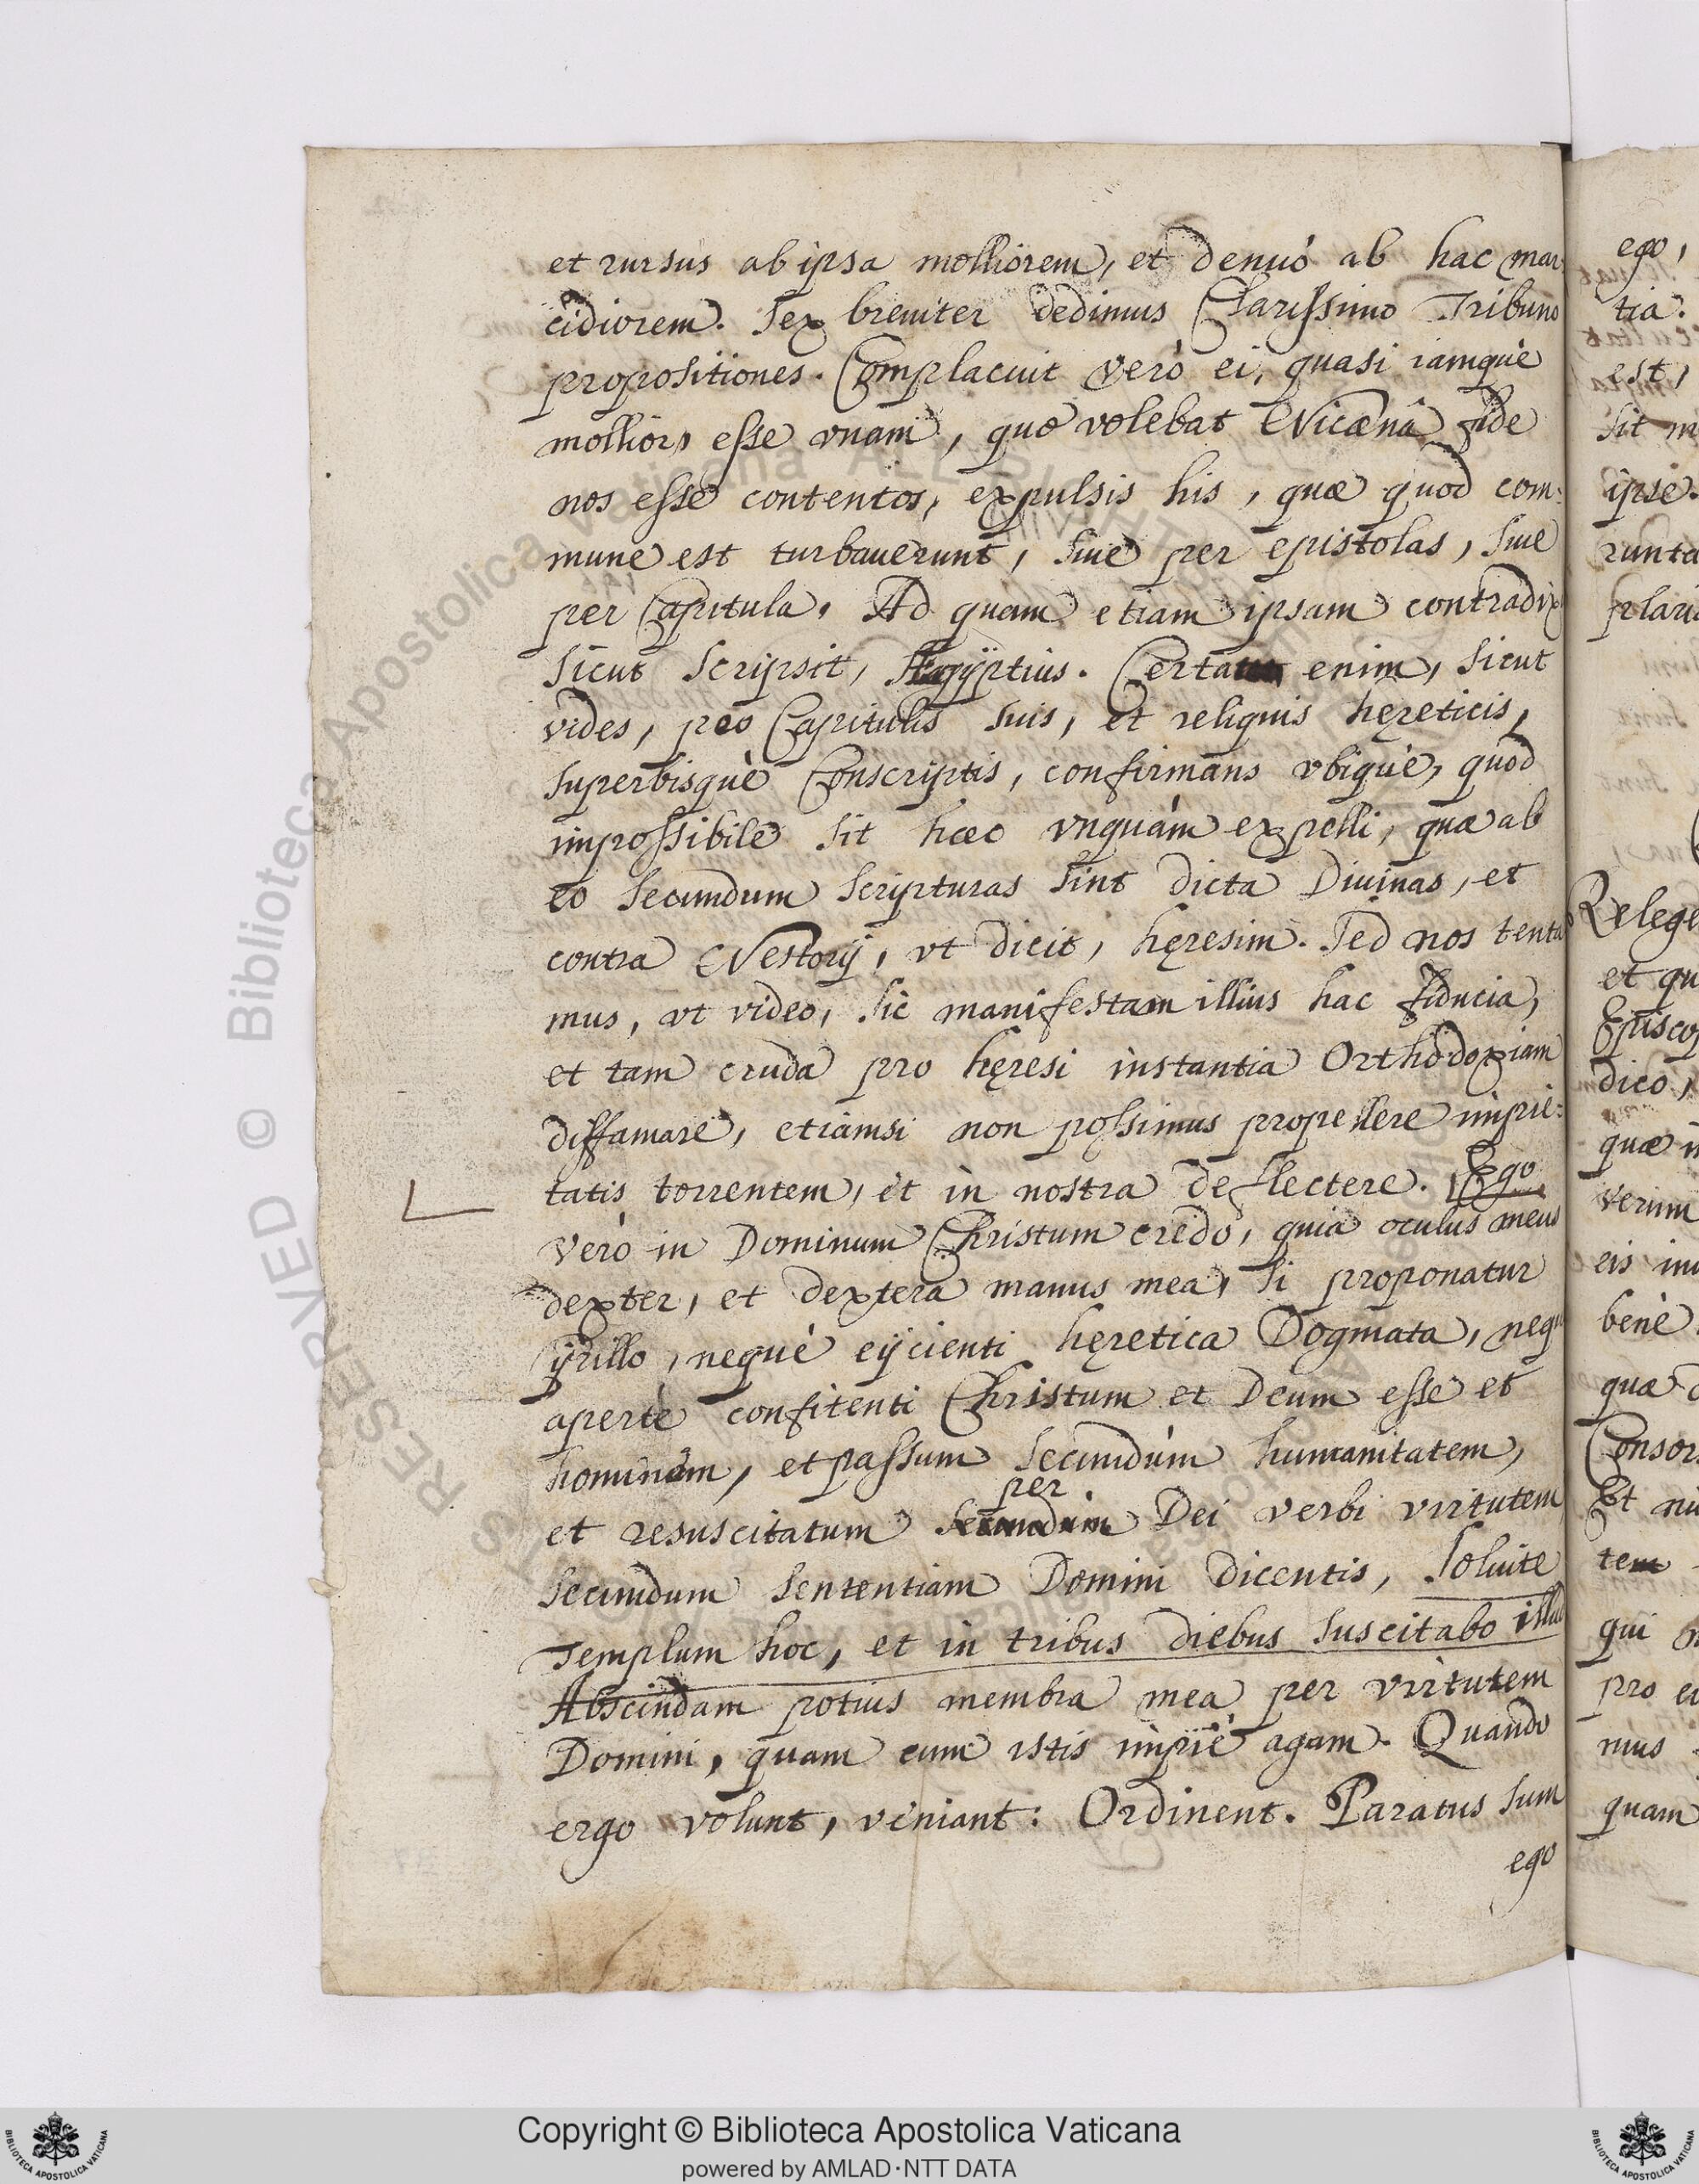 et rursùs ab ipsa molliorem, et denuò ab hac mar-
cidiorem. Sex breuiter dedimus Clarissimo Tribuno
propositiones. Complacuit verò ei, quasi iamquè
molliori esse vnam, quæ volebat Nicæna fide
nos esse contentos, expulsis his, quæ quod com:
mune est turbauerunt, siue per epistolas, siue
per Capitula. Ad quam etiam ipsam contradix
sicut scripsit, Ægÿptius. Certa enim, sicut
vides, pro Capitulis suis, et reliquis hęreticis,
superbisquè Conscriptis, confirmans vbiquè, quod
impossibile sit hæc vnquàm expelli, quæ ab
eo secundum scripturas sint dicta Diuinas, et
contra Nestorij, vt dicit, hęresim. Sed nos tenta
mus, vt video, sic manifestam illius hac fiducia,
et tam cruda pro hęresi instantia Orthodoxiam
diffamare, etiamsi non possimus propellere impie:
tatis torrentem, et in nostra deflectere. Ego
verò in Dominum Christum credo, quia oculus meus
dexter, et dextera manus mea, si proponatur
Cÿrillo, nequè eijcienti hęretica Dogmata, nequ
apertè confitenti Christum et Deum esse et
hominem, et passum secundùm humanitatem,
per
et resuscitatum secundùm Dei verbi virtutem
secundum sententiam Domini dicentis, Soluite
Templum hoc, et in tribus diebus suscitabo illud
Abscindam potius membra mea per virtutem
Domini, quam cum istis impiè agam. Quando
ergo volunt, veniant: Ordinent. Paratus sum
ego
ego,
tia.
est,
sit m
ipse.
runta
plari
Relege
et qu
Episcop
dico,
quæ i
verum
eis
benè
quæ
Consor
Et
tem
qui
pro
mus
quam
© Biblioteca Apostolica Vaticana
ALL RIGHTS RESERVED
Copyright © Biblioteca Apostolica Vaticana
powered by AMLAD·NTT DATA
BIBLIOTECA APOSTOLICA VATICANA
BIBLIOTECA APOSTOLICA VATICANA